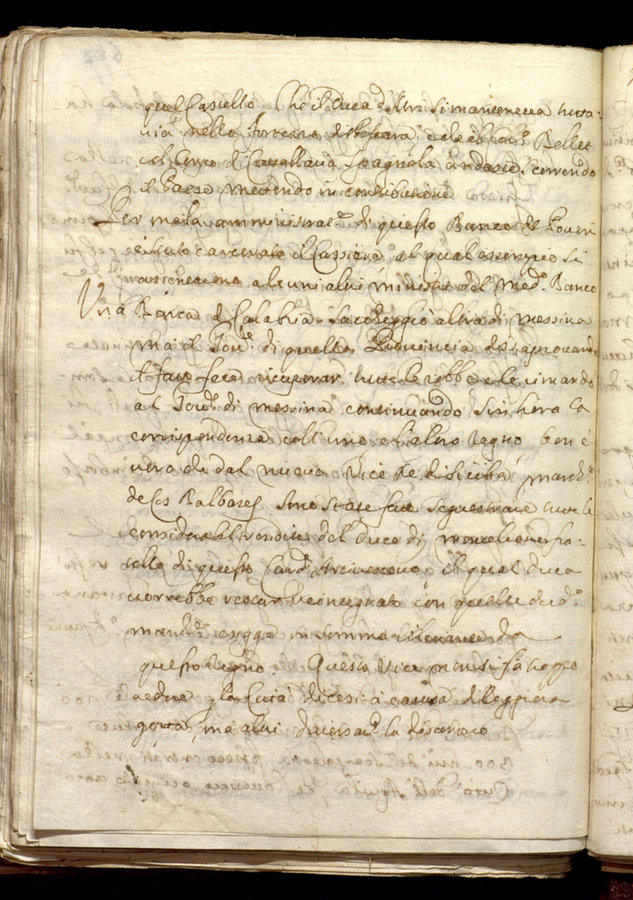 quel Castello. Che il Duca d'Atri si manteneva tutta-
via nella fortezza di Pescara, e che il
col Corpo di Cavallaria Spagnola andasse correndo
il Paese mettendo in contributione
Per mala amministrat.e di questo Banco de Poveri
è stato carcerato il Cassiere, al qual esempio si
alcuni altri ministri del med.o Banco
Una Barca di Calabria saccheggiò altra di Messina
ma il Gov.r di quella Provincia disaprovando
il fatto fece ricuperar tutte le robbe e le rimandò
al Gov.r di Messina continuando sin hora la
corrispondenza coll'uno e l'altro Regno, ben è
vero che dal nuovo Vice Re di Sicilia, March.e
de los Balbases sono state fatte sequestrare tutte le
considerabil rendite del Duca di Monteleone fra-
tello di questo Card. Arcivescovo, il qual Duca
vorrebbe restar reintegrato con quelle che d.o
March.e esigga in somma rilevante da
questo Regno. Questo Vice Re si fa troppo
vedere p la Città dicesi à causa di leggiera
gotta, ma altri diversam.e la discorrono